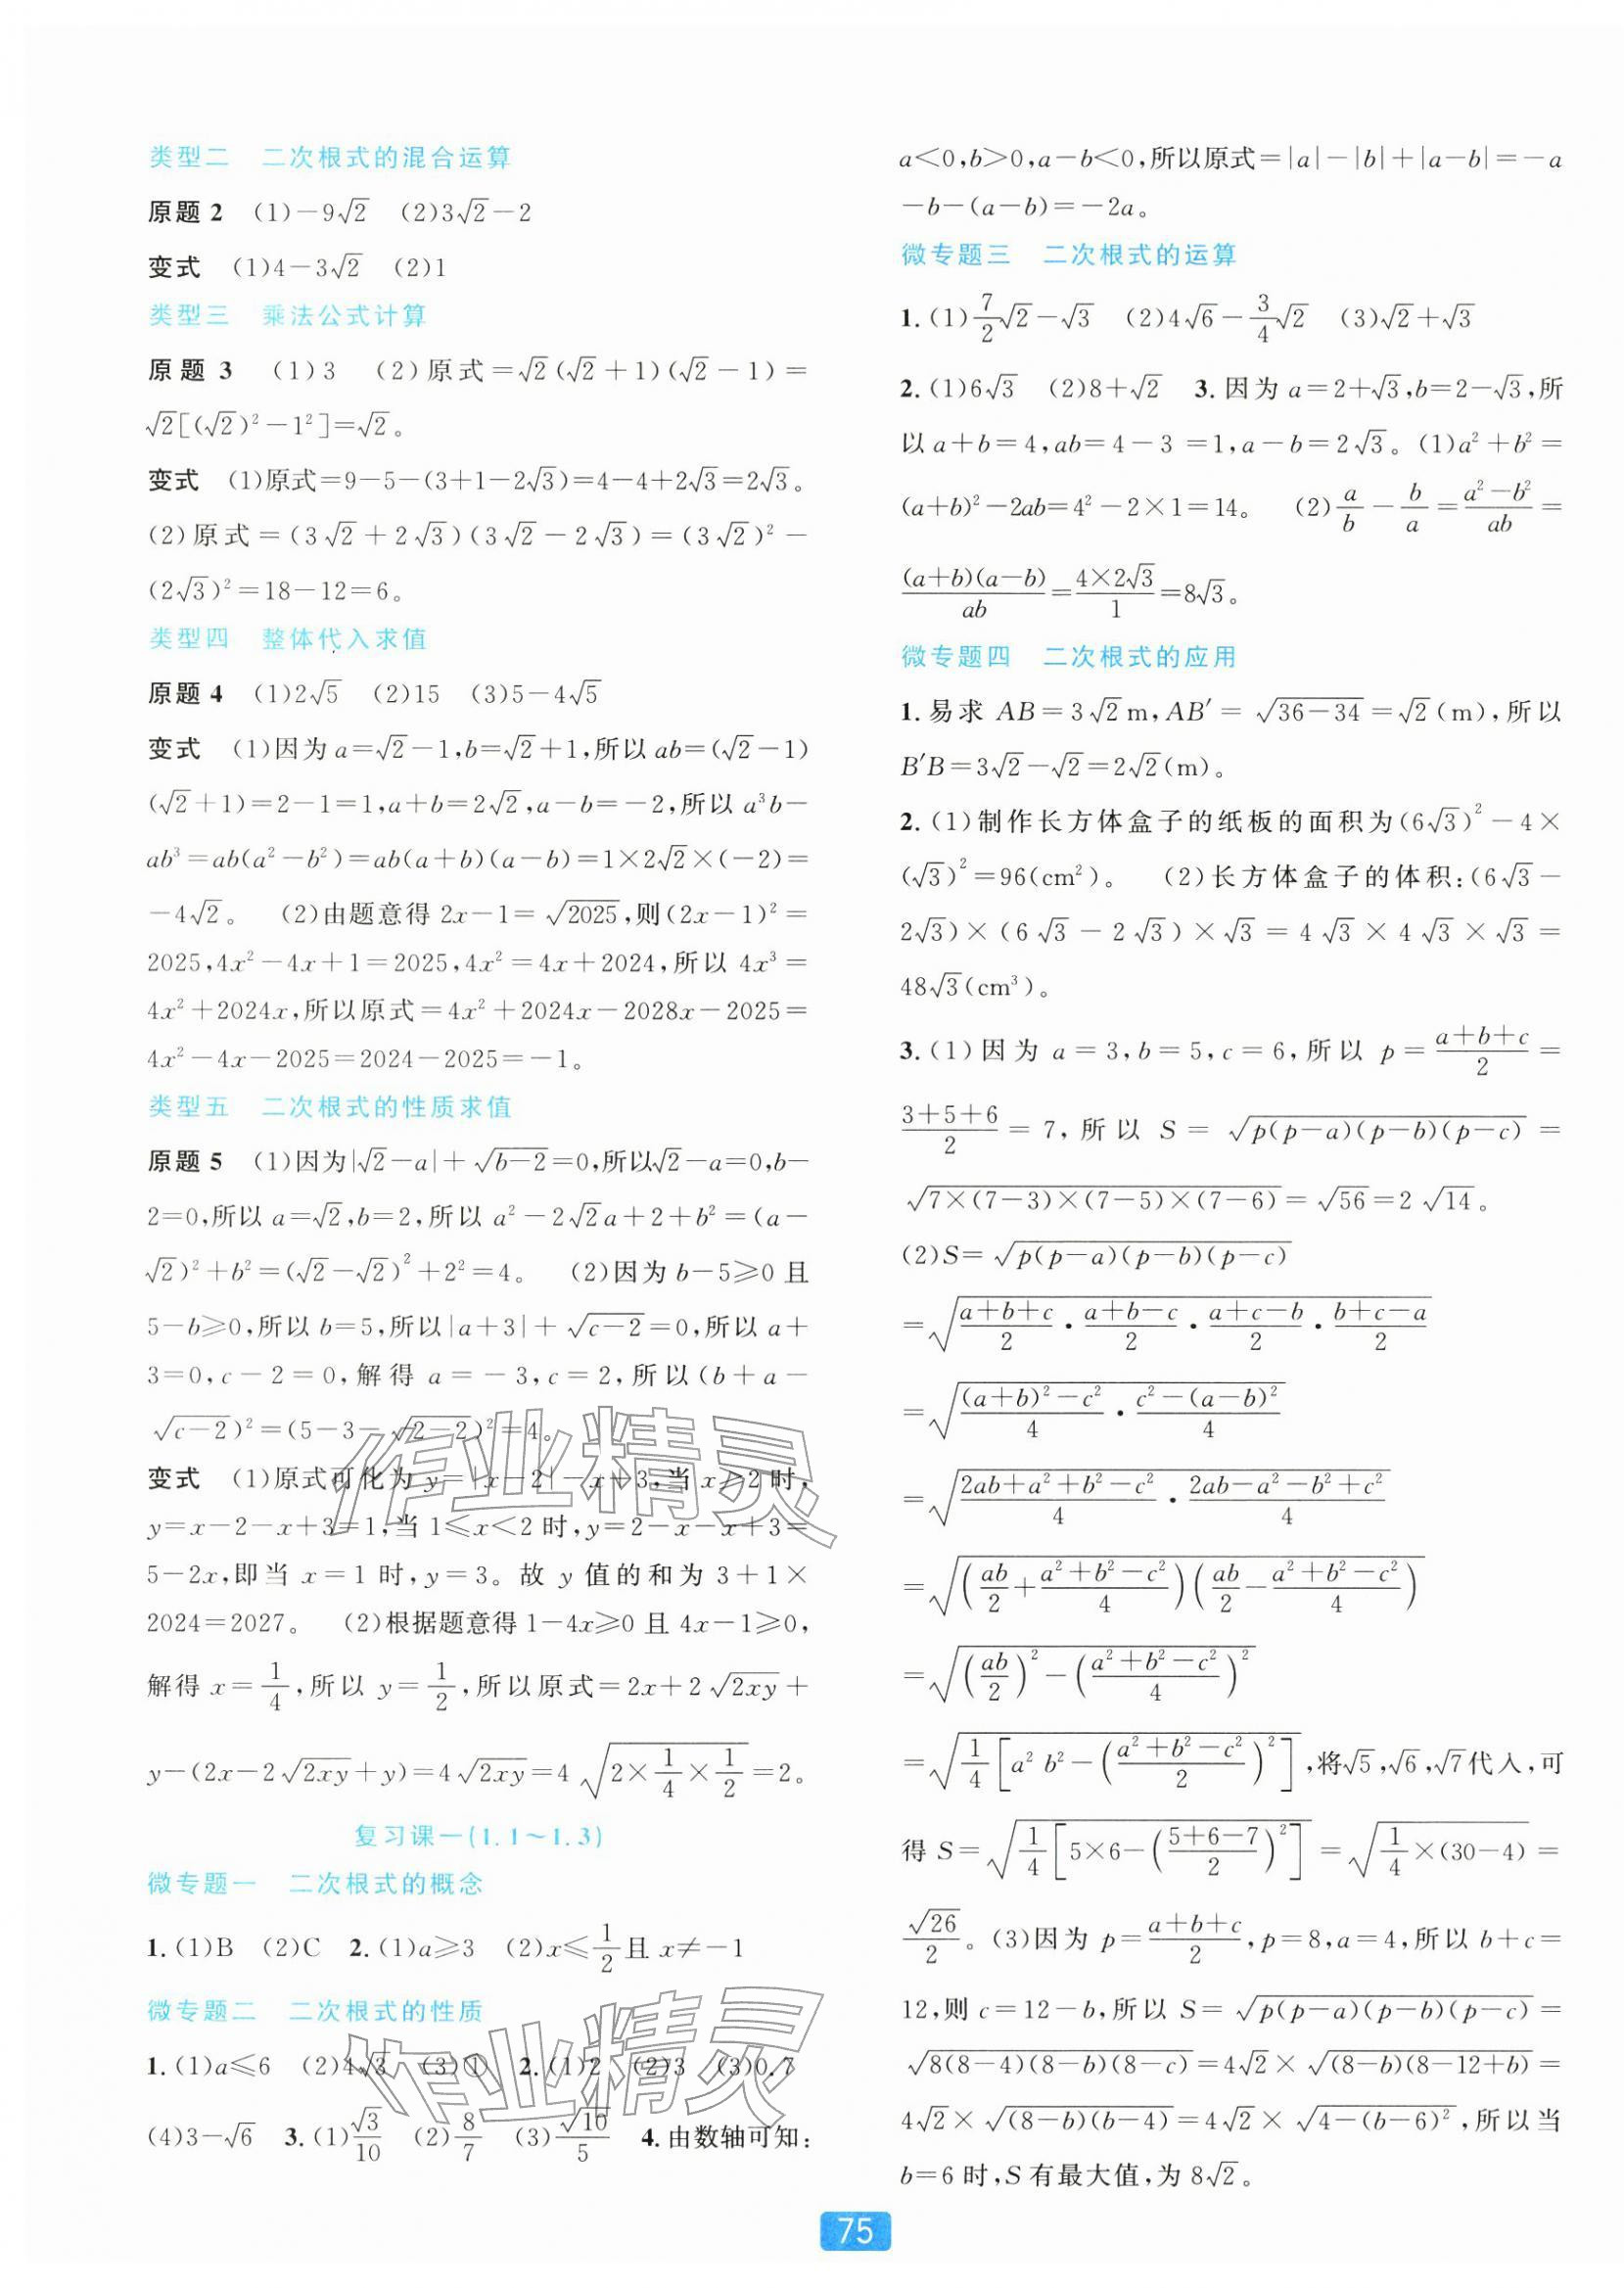 类型二 二次根式的混合运算
原题2 (1)－9√2 (2)3√2－2
变式 (1)4－3√2 (2)1
类型三 乘法公式计算
原题3 (1)3 (2)原式＝√2(√2＋1)(√2－1)＝
√2[(√2)²－1²]＝√2。
变式 (1)原式＝9－5－(3＋1－2√3)＝4－4＋2√3＝2√3。
(2)原式＝(3√2＋2√3)(3√2－2√3)＝(3√2)²－
(2√3)²＝18－12＝6。
类型四 整体代入求值
原题4 (1)2√5 (2)15 (3)5－4√5
变式 (1)因为a＝√2－1,b＝√2＋1,所以ab＝(√2－1)
(√2＋1)＝2－1＝1,a＋b＝2√2,a－b＝－2,所以a³b－
ab³＝ab(a²－b²)＝ab(a＋b)(a－b)＝1×2√2×(－2)＝
－4√2。 (2)由题意得2x－1＝√2025,则(2x－1)²＝
2025,4x²－4x＋1＝2025,4x²＝4x＋2024,所以4x³＝
4x²＋2024x,所以原式＝4x²＋2024x－2028x－2025＝
4x²－4x－2025＝2024－2025＝－1。
类型五 二次根式的性质求值
原题5 (1)因为|√2－a|＋√(b－2)＝0,所以√2－a＝0,b－
2＝0,所以a＝√2,b＝2,所以a²－2√2a＋2＋b²＝(a－
√2)²＋b²＝(√2－√2)²＋2²＝4。 (2)因为b－5≥0且
5－b≥0,所以b＝5,所以|a＋3|＋√(c－2)＝0,所以a＋
3＝0,c－2＝0,解得a＝－3,c＝2,所以(b＋a－
√(c－2))²＝(5－3－√(2－2))²＝4。
变式 (1)原式可化为y＝|x－2|－x＋3,当x≥2时,
y＝x－2－x＋3＝1,当1≤x＜2时,y＝2－x－x＋3＝
5－2x,即当x＝1时,y＝3。故y值的和为3＋1×
2024＝2027。 (2)根据题意得1－4x≥0且4x－1≥0,
解得x＝1/4,所以y＝1/2,所以原式＝2x＋2√(2xy)＋
y－(2x－2√(2xy)＋y)＝4√(2xy)＝4√(2×1/4×1/2)＝2。
复习课一(1.1～1.3)
微专题一 二次根式的概念
1.(1)B (2)C 2.(1)a≥3 (2)x≤1/2且x≠－1
微专题二 二次根式的性质
1.(1)a≤6 (2)4√3 (3)① 2.(1)2 (2)3 (3)0.7
(4)3－√6 3.(1)√3/10 (2)8/7 (3)√10/5 4.由数轴可知:
a＜0,b＞0,a－b＜0,所以原式＝|a|－|b|＋|a－b|＝－a
－b－(a－b)＝－2a。
微专题三 二次根式的运算
1.(1)7/2√2－√3 (2)4√6－3/4√2 (3)√2＋√3
2.(1)6√3 (2)8＋√2 3.因为a＝2＋√3,b＝2－√3,所
以a＋b＝4,ab＝4－3＝1,a－b＝2√3。(1)a²＋b²＝
(a＋b)²－2ab＝4²－2×1＝14。 (2)a/b－b/a＝(a²－b²)/ab＝
(a＋b)(a－b)/ab＝4×2√3/1＝8√3。
微专题四 二次根式的应用
1.易求AB＝3√2m,AB′＝√(36－34)＝√2(m),所以
B′B＝3√2－√2＝2√2(m)。
2.(1)制作长方体盒子的纸板的面积为(6√3)²－4×
(√3)²＝96(cm²)。 (2)长方体盒子的体积:(6√3－
2√3)×(6√3－2√3)×√3＝4√3×4√3×√3＝
48√3(cm³)。
3.(1)因为a＝3,b＝5,c＝6,所以p＝(a＋b＋c)/2＝
(3＋5＋6)/2＝7,所以S＝√(p(p－a)(p－b)(p－c))＝
√(7×(7－3)×(7－5)×(7－6))＝√56＝2√14。
(2)S＝√(p(p－a)(p－b)(p－c))
＝√((a＋b＋c)/2·(a＋b－c)/2·(a＋c－b)/2·(b＋c－a)/2)
＝√(((a＋b)²－c²)/4·(c²－(a－b)²)/4)
＝√((2ab＋a²＋b²－c²)/4·(2ab－a²－b²＋c²)/4)
＝√((ab/2＋(a²＋b²－c²)/4)(ab/2－(a²＋b²－c²)/4))
＝√((ab/2)²－((a²＋b²－c²)/4)²)
＝√(1/4[a²b²－((a²＋b²－c²)/2)²]),将√5,√6,√7代入,可
得S＝√(1/4[5×6－((5＋6－7)/2)²])＝√(1/4×(30－4))＝
√26/2。(3)因为p＝(a＋b＋c)/2,p＝8,a＝4,所以b＋c＝
12,则c＝12－b,所以S＝√(p(p－a)(p－b)(p－c))＝
√(8(8－4)(8－b)(8－c))＝4√2×√((8－b)(8－12＋b))＝
4√2×√((8－b)(b－4))＝4√2×√(4－(b－6)²),所以当
b＝6时,S有最大值,为8√2。
作业精灵
作业精灵
75